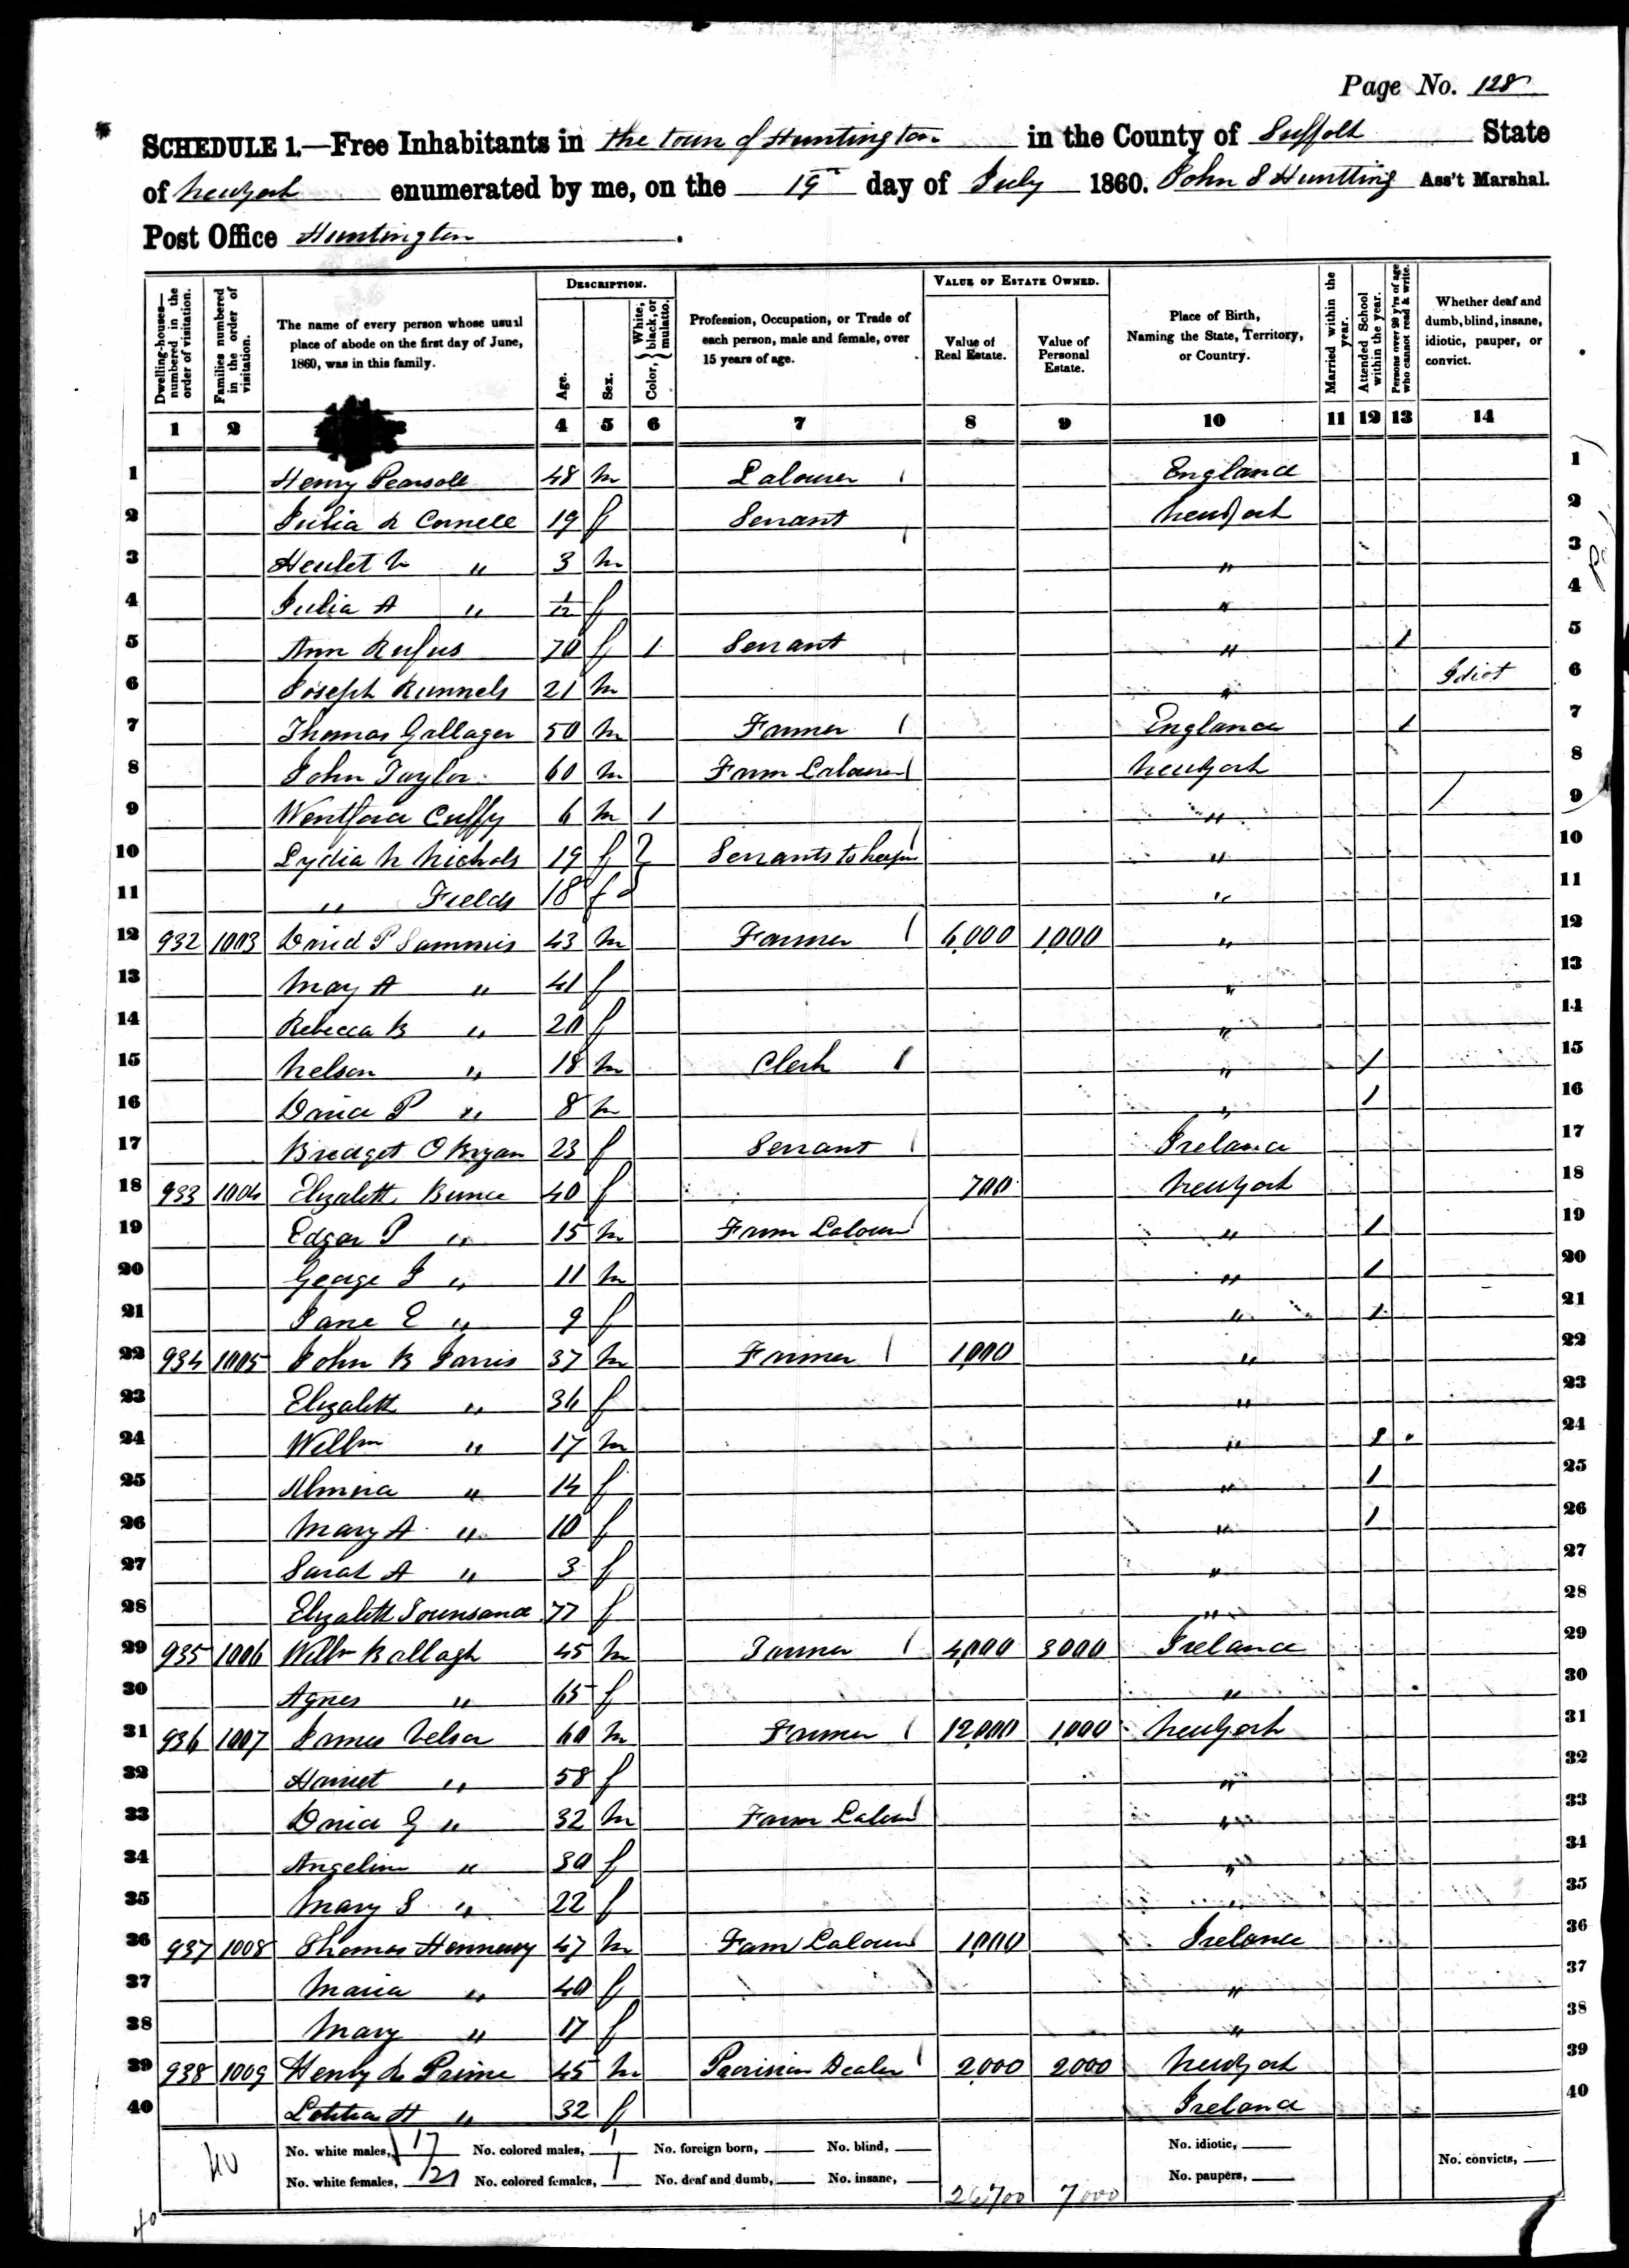 Page No. 128
SCHEDULE 1.—Free Inhabitants in the town of Huntington in the County of Suffolk State
of New York enumerated by me, on the 19th day of July 1860. John S Huntting Ass't Marshal.
Post Office Huntington.
Dwelling-houses—numbered in the order of visitation.
Families numbered in the order of visitation.
The name of every person whose usual place of abode on the first day of June, 1860, was in this family.
DESCRIPTION.
Age.
Sex.
Color, { White, black, or mulatto.
Profession, Occupation, or Trade of each person, male and female, over 15 years of age.
VALUE OF ESTATE OWNED.
Value of Real Estate.
Value of Personal Estate.
Place of Birth, Naming the State, Territory, or Country.
Married within the year.
Attended School within the year.
Persons over 20 y'rs of age who cannot read & write.
Whether deaf and dumb, blind, insane, idiotic, pauper, or convict.
1 2 4 5 6 7 8 9 10 11 12 13 14
1 Henry Pearsole 48 m Labourer England 1
2 Julia A Cornell 19 f Servant New York 2
3 Heulet " 3 m " 3
4 Julia A " 1/12 f " 4
5 Ann Rufus 70 f 1 Servant " 1 5
6 Joseph Runnels 21 m " Idiot 6
7 Thomas Gallager 50 m Farmer England 1 7
8 John Taylor 60 m Farm Labourer New York 8
9 Cuffy 6 m 1 " 9
10 Lydia N Nichols 19 f Servants to " 10
11 " Fields 18 f " 11
12 932 1003 David P Sammis 43 m Farmer 6,000 1,000 " 12
13 Mary A " 41 f " 13
14 Rebecca B " 20 f " 14
15 Nelson " 18 m Clerk " 1 15
16 David P " 8 m " 1 16
17 Bridget O Bryan 23 f Servant Ireland 17
18 933 1004 Elizabeth Bunce 40 f 700 New York 18
19 Edgar P " 15 m Farm Labourer " 1 19
20 George J " 11 m " 1 20
21 Jane E " 9 f " 1 21
22 934 1005 John B Jarvis 37 m Farmer 1,000 " 22
23 Elizabeth " 36 f " 23
24 Willm " 17 m " 1 24
25 Almira " 14 f " 1 25
26 Mary A " 10 f " 1 26
27 Sarah A " 3 f " 27
28 Elizabeth Townsand 77 f " 28
29 935 1006 Willm Ballagh 45 m Farmer 4,000 3000 Ireland 29
30 Agnes " 65 f " 30
31 936 1007 James Velsor 60 m Farmer 12,000 1,000 New York 31
32 Harriet " 58 f " 32
33 David G " 32 m Farm Labour " 33
34 Angeline " 30 f " 34
35 Mary S " 22 f " 35
36 937 1008 Thomas Hennessy 47 m Farm Labourer 1,000 Ireland 36
37 Maria " 40 f " 37
38 Mary " 17 f " 38
39 938 1009 Henry Prime 45 m Provision Dealer 2,000 2000 New York 39
40 Letitia H " 32 f Ireland 40
40 No. white males, 17 No. colored males, 1 No. foreign born, No. blind, No. idiotic,
No. white females, 21 No. colored females, 1 No. deaf and dumb, No. insane, 26700 7000 No. paupers, No. convicts,
40